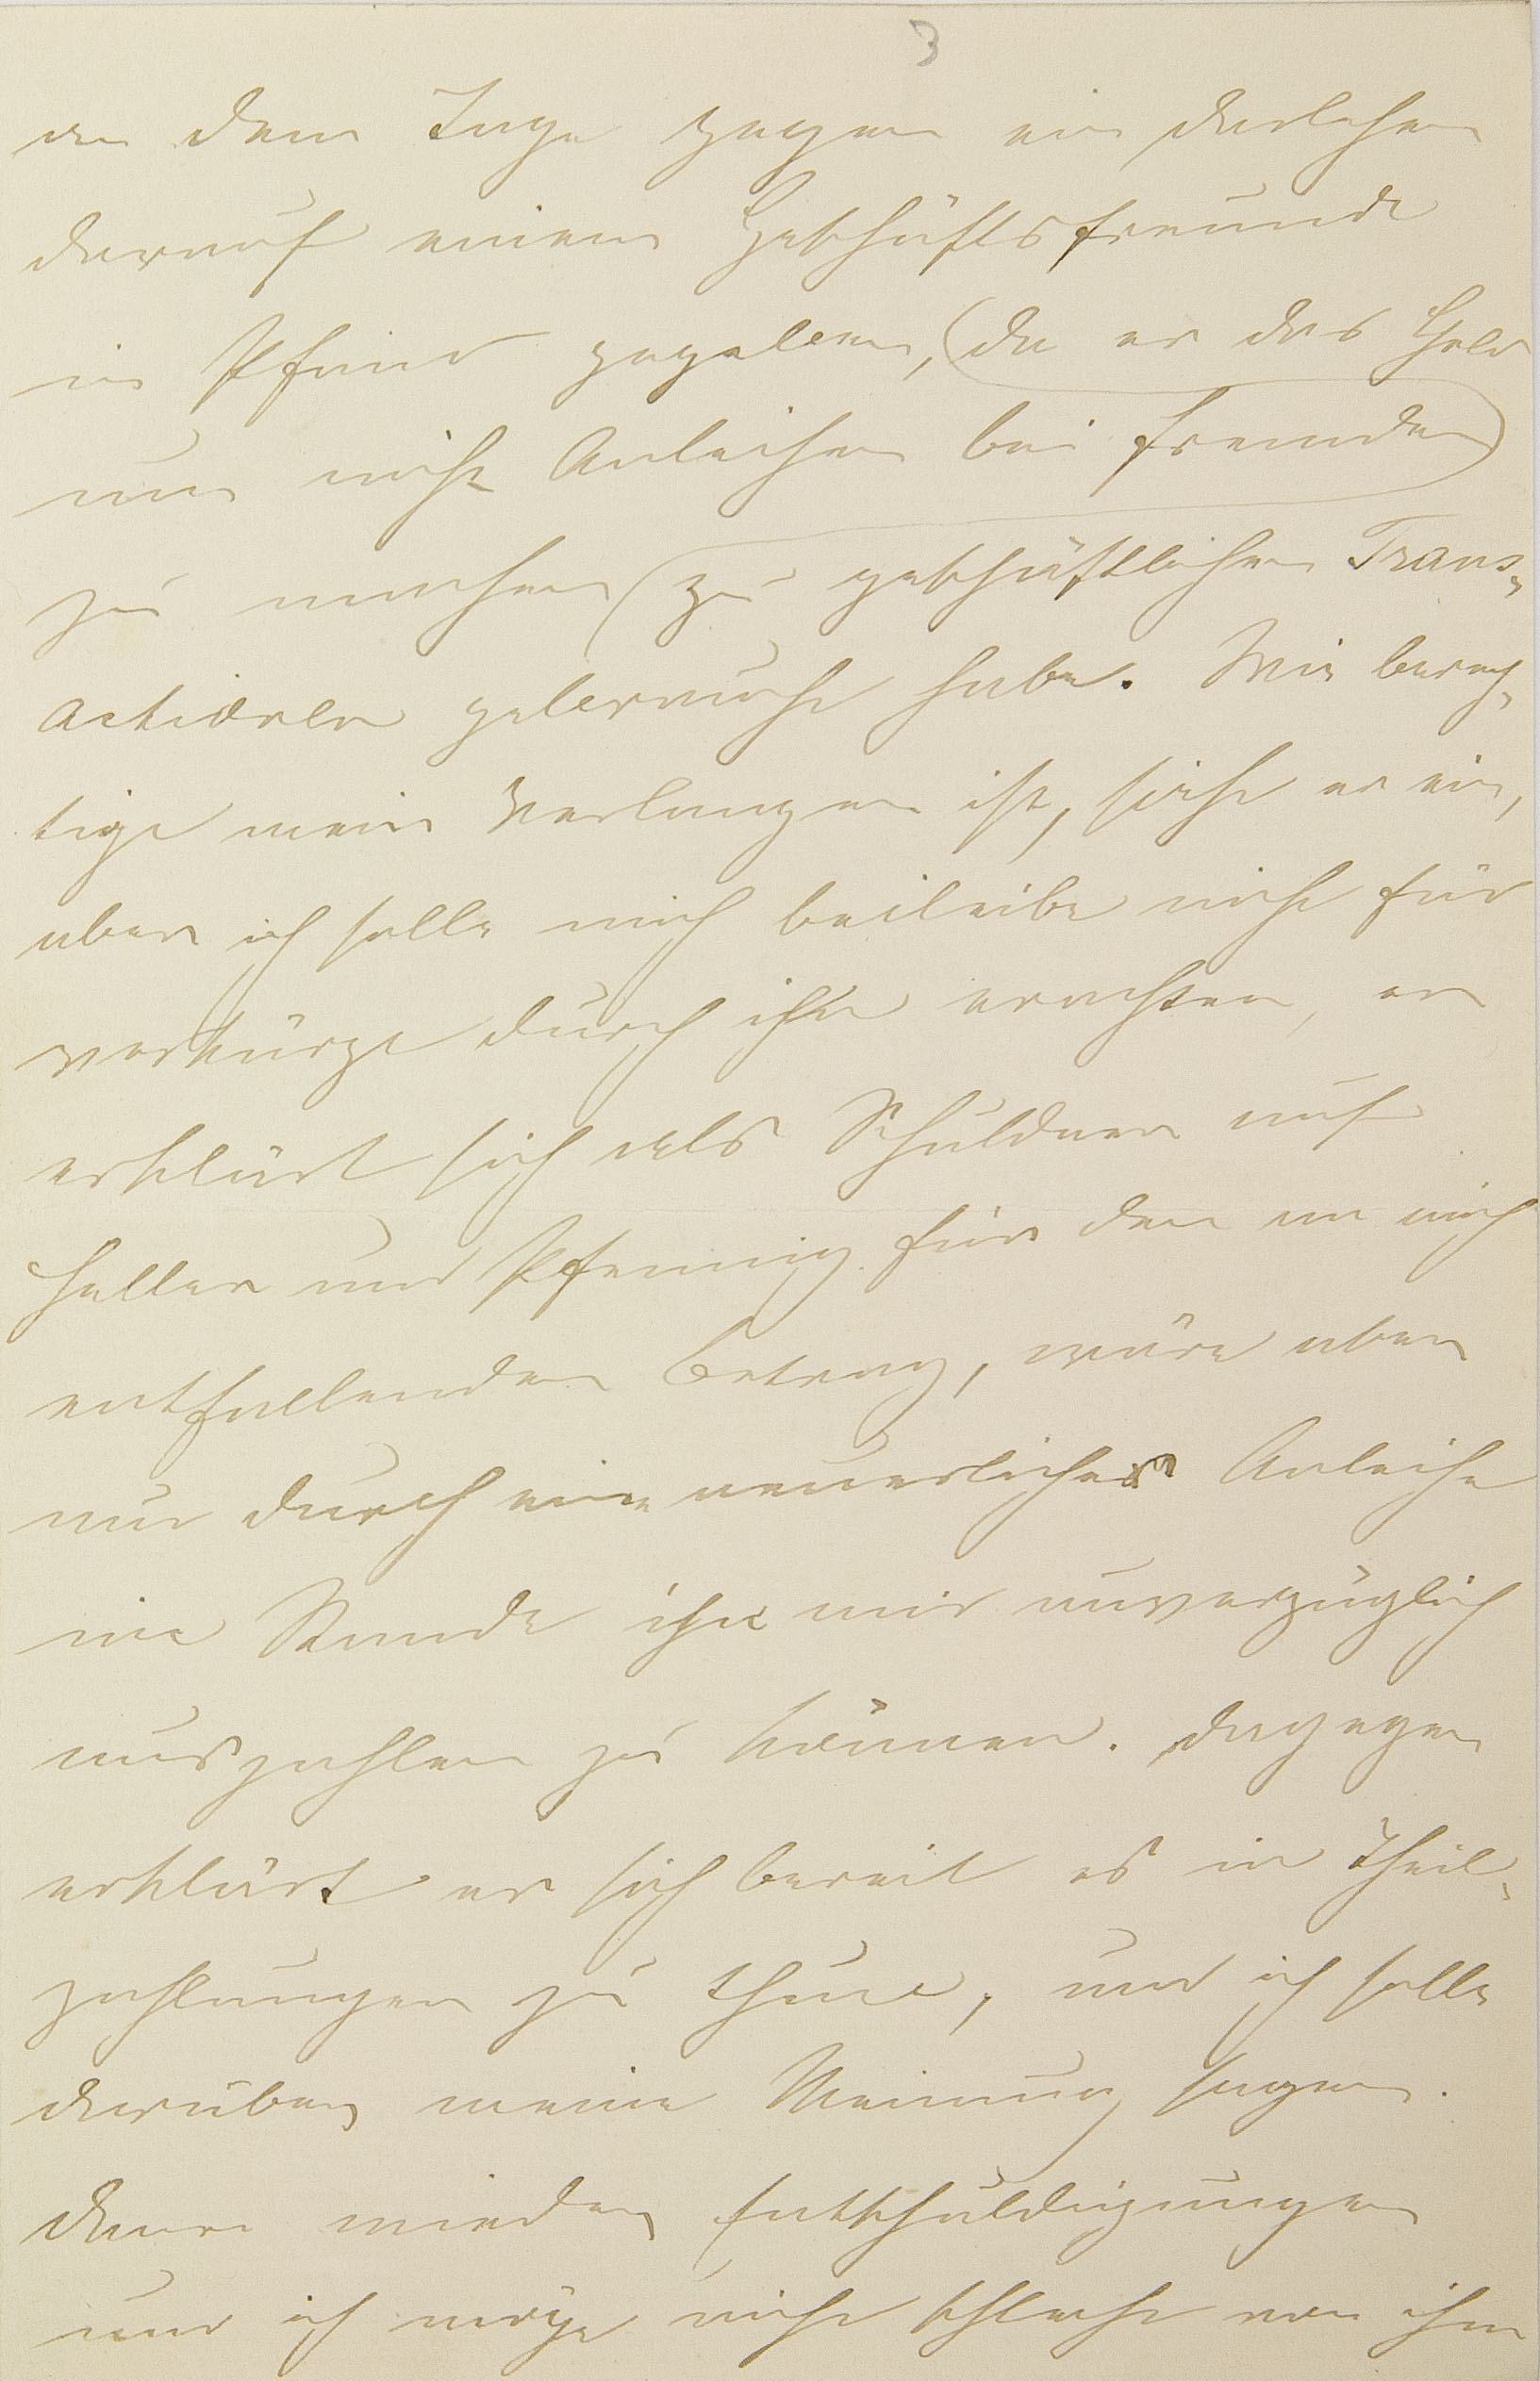 3
an dem Tage gegen ein Darlehen
darauf einem Geschäftsfreunde
in Pfand gegeben, (da er das Geld
um nicht Anleihen bei Fremden)
zu machen (zu geschäftlichen Trans-
actionen gebraucht habe. Wie berech-
tigt mein Verlangen ist, sieht er ein,
aber ich solle mich beileibe nicht für
verkürzt durch ihn erachten, er
erklärt sich als Schuldner auf
Heller und Pfennig für den an mich
entfallenden Betrag, wäre aber
nur durch eine neuerliche Anleihe
im Stande ihn mir unverzüglich
auszahlen zu können. Dagegen
erklärt er sich bereit es in Theil-
zahlungen zu thun, und ich solle
darüber meine Meinung sagen.
Dann wieder Entschuldigungen
und ich möge nicht schlecht von ihm